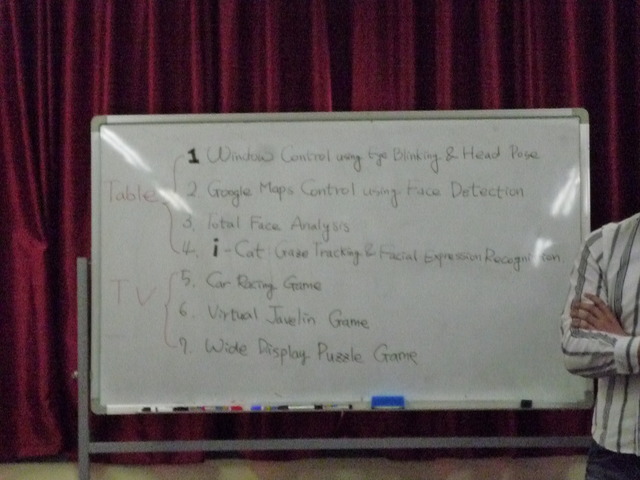 1 Window Control using Eye Blinking & Head Pose
Table
2. Google Maps Control using Face Detection
3. Total Face Analysis
4. i-Cat: Gaze Tracking & Facial Expression Recognition.
TV
5. Car Racing Game
6. Virtual Javelin Game
7. Wide Display Puzzle Game